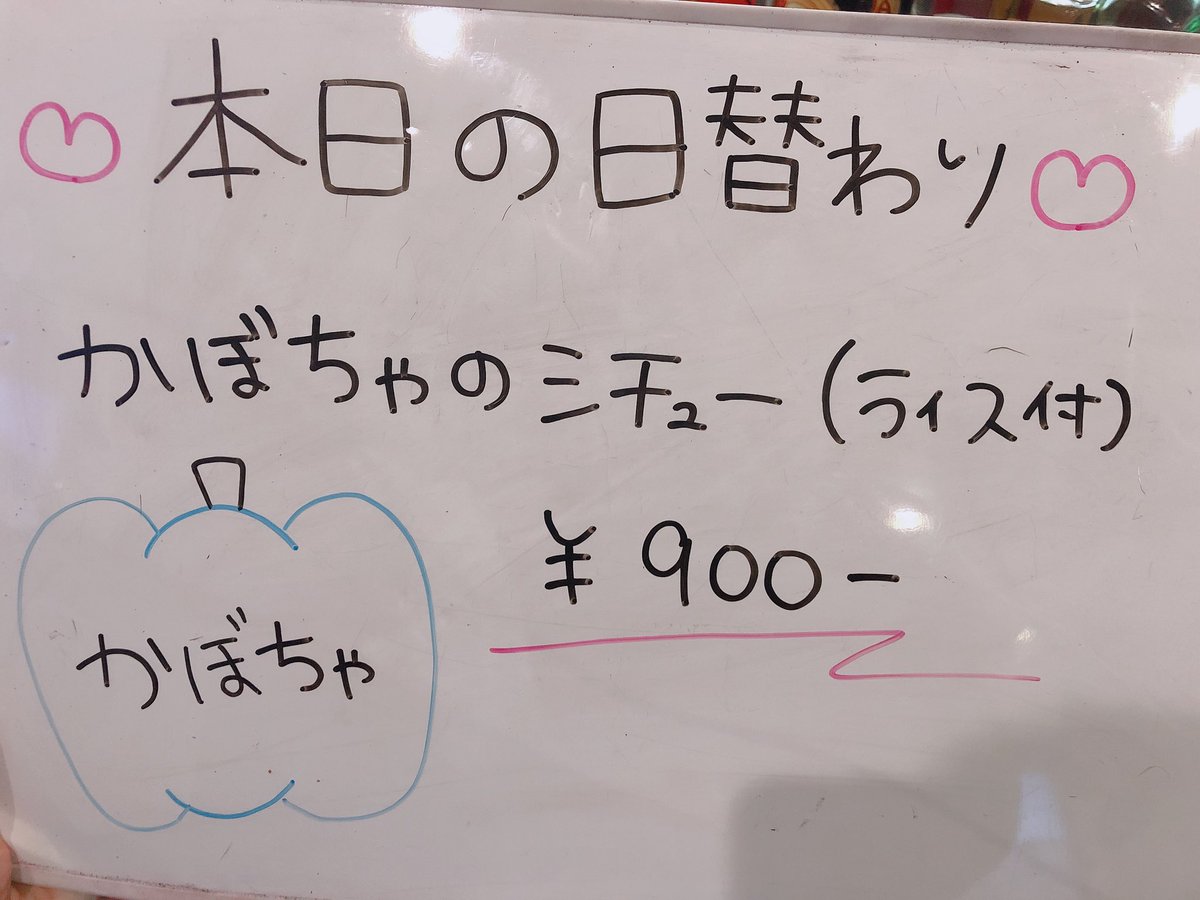 本日の日替わり
かぼちゃのシチュー(ライス付)
¥900-
かぼちゃ